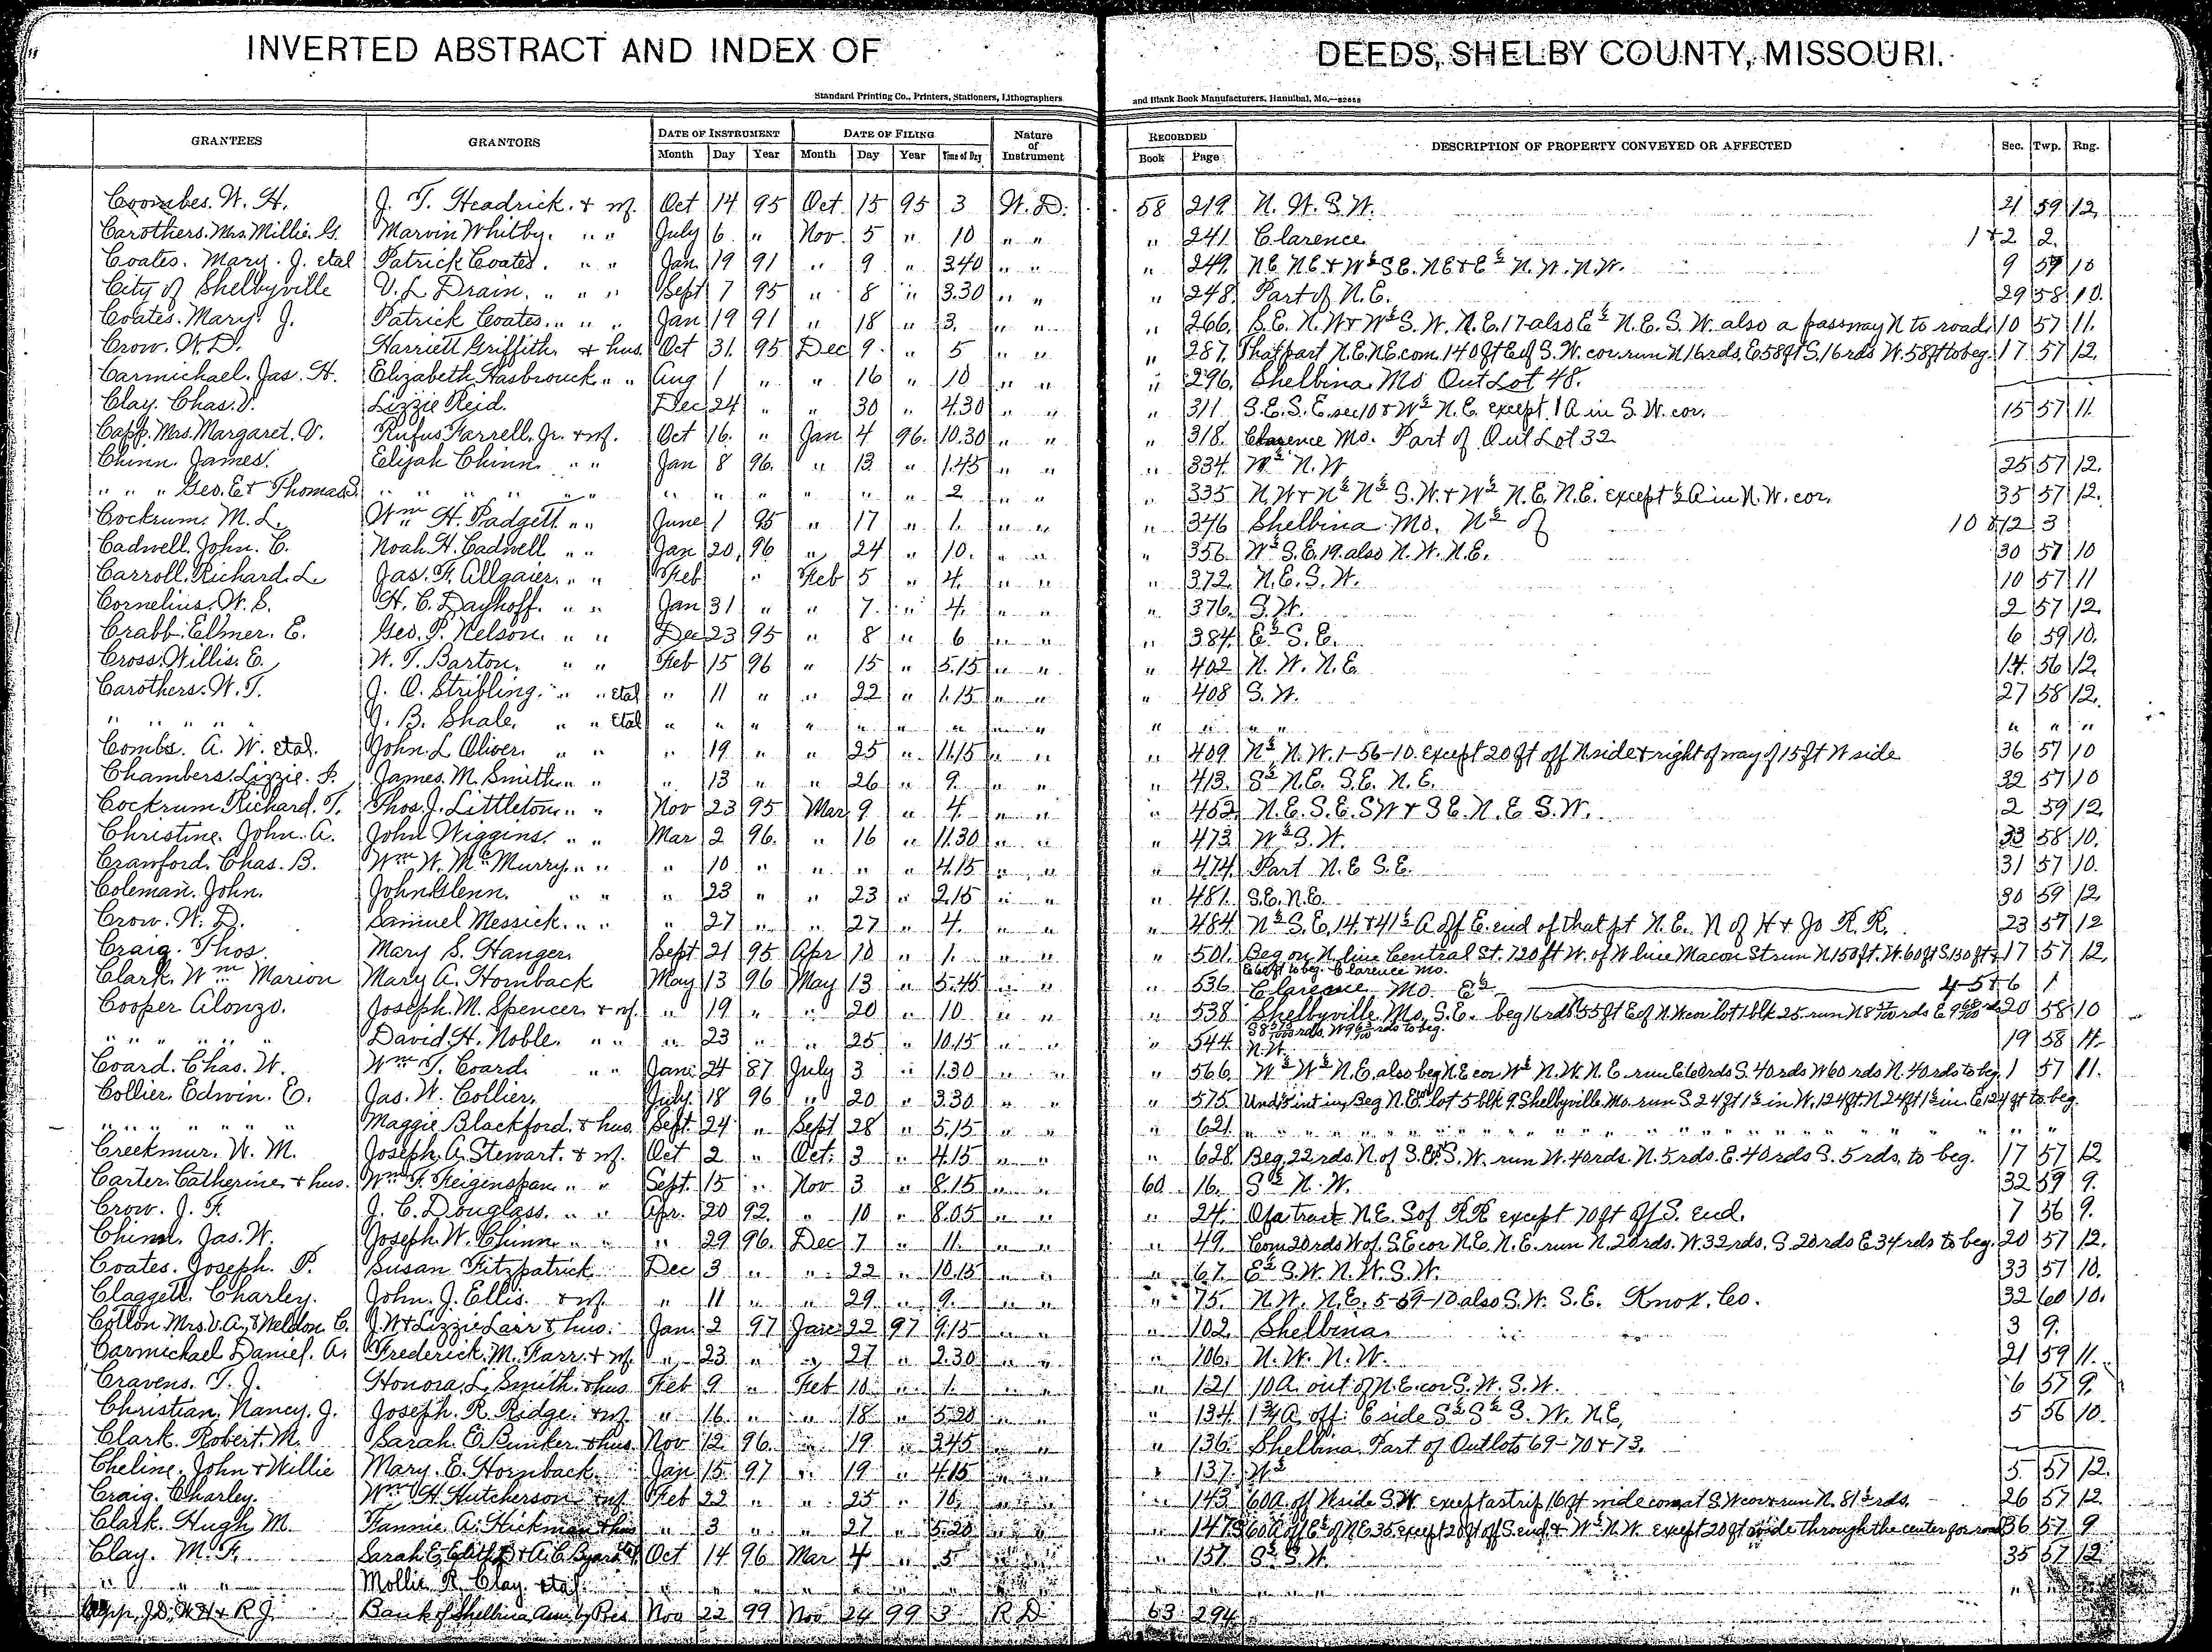 INVERTED ABSTRACT AND INDEX OF DEEDS, SHELBY COUNTY, MISSOURI.
Standard Printing Co., Printers, Stationers, Lithographers and Blank Book Manufacturers, Hannibal, Mo.
GRANTEES GRANTORS DATE OF INSTRUMENT DATE OF FILING Nature of Instrument RECORDED DESCRIPTION OF PROPERTY CONVEYED OR AFFECTED Sec. Twp. Rng.
Month Day Year Month Day Year Time of Day Book Page
Coombes. W. H. J. T. Headrick. & wf. Oct 14 95 Oct 15 95 3 W. D. 58 219 N. W. S. W. 21 59 12
Carothers. Mrs. Millie. G. Marvin Whitby. " " July 6 " Nov. 5 " 10 " " " 241 Clarence 1 & 2 2.
Coates. Mary. J. etal Patrick Coates. " " Jan 19 91 " 9 " 3.40 " " " 249 N.E. N.E. & W½ S.E. N.E. & E½ N.W. N.W. 9 57 10
City of Shelbyville V. L. Drain. " " " Sept 7 95 " 8 " 3.30 " " " 248 Part of N.E. 29 58 10.
Coates. Mary. J. Patrick Coates. " " " Jan 19 91 " 18 " 3. " " " 266 S.E. N.W & W½ S.W. N.E. 17 also E½ N.E. S.W. also a passway N to road 10 57 11.
Crow. W. D. Harriett Griffith. & hus. Oct 31. 95 Dec 9. " 5 " " " 287. That part N.E. N.E. com. 140 ft E of S.W. cor. run N 16 rds. E. 58 ft S. 16 rds W. 58 ft to beg. 17 57 12.
Carmichael. Jas. H. Elizabeth Hasbrouck " " Aug 1 " " 16 " 10 " " " 296. Shelbina. Mo Out Lot 48.
Clay. Chas. V. Lizzie Reid. Dec 24 " " 30 " 4.30 " " " 311 S.E. S.E. sec 10 & W½ N.E. except 1 A in S.W. cor. 15 57 11.
Capp. Mrs. Margaret. V. Rufus Farrell. Jr. & wf. Oct 16. " Jan 4 96. 10.30 " " " 318. Clarence Mo. Part of Out Lot 32
Chinn. James. Elijah Chinn. " " Jan 8 96. " 13. " 1.45 " " " 334. W½ N.W 25 57 12.
" " " Geo. E & Thomas S. " " " " " " " " " " " 2 " " " 335 N.W & N½ N½ S.W. & W½ N.E. N.E. except ½ A in N.W. cor. 35 57 12.
Cockrum. M. L. Wm H. Padgett " " June 1 95 " 17 " 1. " " " 346 Shelbina. Mo. N½ of 10 & 12 3
Cadwell. John. C. Noah H. Cadwell " " Jan 20. 96 " 24 " 10. " " " 356 W½ S.E. 19. also N.W. N.E. 30 57 10
Carroll. Richard. L. Jas. F. Allgaier. " " Feb " Feb 5 " 4. " " " 372 N.E. S.W. 10 57 11
Cornelius. W. S. H. C. Dayhoff. " " Jan 31 " " 7. " 4. " " " 376. S.W. 2 57 12.
Crabb. Elmer. E. Geo. P. Nelson. " " Dec 23 95 " 8 " 6 " " " 384. E½ S.E. 6 59 10.
Cross. Willis. E. W. T. Barton. " " Feb 15 96 " 15 " 5.15 " " " 402 N.W. N.E. 14. 56 12
Carothers. W. T. J. O. Stribling. " " etal " 11 " " 22 " 1.15 " " " 408 S.W. 27 58 12.
" " " " J. B. Shale. " " etal " " " " " " " " " " " " " " "
Combs. A. W. etal. John. L Oliver. " " " 19 " " 25 " 11.15 " " " 409 N½ N.W. 1-56-10. except 20 ft off N side & right of way of 15 ft W side 36 57 10
Chambers. Lizzie. F. James. M. Smith " " " 13 " " 26 " 9. " " " 413. S½ N.E. S.E. N.E. 32 57 10
Cockrum. Richard. T. Thos. J. Littleton " " Nov 23 95 Mar 9 " 4. " " " 452 N.E. S.E. SW & S.E. N.E S.W. 2 59 12
Christine. John. A. John Wiggins. " " Mar 2 96. " 16 " 11.30 " " " 473 W½ S.W. 33 58 10.
Crawford. Chas. B. Wm W. McMurry " " " 10 " " " " 4.15 " " " 474 Part N.E S.E. 31 57 10.
Coleman. John. John Glenn. " " " 23 " " 23 " 2.15 " " " 481. S.E. N.E. 30 59 12
Crow. W. D. Samuel Messick. " " " 27 " " 27 " 4. " " " 484 N½ S.E. 14. & 41½ A off E. end of that pt N.E. N of H & Jo R.R. 23 57 12
Craig. Thos. Mary S. Hanger. Sept 21 95 Apr 10 " 1. " " " 501. Beg on N. line Central St. 120 ft W. of W line Macon St run N 150 ft. W. 60 ft S. 130 ft & 17 57 12.
E 60 ft to beg. Clarence Mo.
Clark. Wm Marion Mary A. Hornback May 13 96 May 13 " 5.45 " " " 536 Clarence Mo. E½ 4 5 & 6 1
Cooper Alonzo. Joseph. M. Spencer & wf. " 19 " " 20 " 10 " " " 538 Shelbyville. Mo. S.E. 20 58 10
" " " " David. H. Noble. " " " 23 " " 25 " 10.15 " " " 544. N.W. 19 58 11
Coard. Chas. W. Wm T. Coard. " " Jan 24 87 July 3 " 1.30 " " " 566 W½ W½ N.E. also beg N.E cor W½ N.W. N.E. run E 60 rds S. 40 rds W 60 rds N. 40 rds to beg. 1 57 11.
Collier. Edwin. E. Jas. W. Collier. July 18 96 " 20 " 3.30 " " " 575 Und ½ int in Beg N.E. cor lot 5 blk 9. Shelbyville. Mo. run S. 24 ft 1½ in W. 124 ft. N 24 ft 1½ in. E 124 ft to beg.
" " " " Maggie Blackford. & hus. Sept 24 " Sept 28 " 5.15 " " " 621 " " " "
Creekmur. W. M. Joseph. A. Stewart. & wf. Oct 2 " Oct. 3 " 4.15 " " " 628 Beg. 22 rds. N. of S.E. S.W. run W. 40 rds. N. 5 rds. E. 40 rds S. 5 rds. to beg. 17 57 12
Carter. Catherine & hus. Wm F. Feiginspan " " Sept. 15 " Nov 3 " 8.15 " " 60 16. S½ N.W. 32 59 9.
Crow. J. F. J. C. Douglass. " " Apr. 20 92. " 10 " 8.05 " " " 24. Of a tract N.E. S of RR except 70 ft off S. end. 7 56 9.
Chinn. Jas. W. Joseph. W. Chinn " " " 29 96. Dec 7 " 11. " " " 49. Com 20 rds W of. S.E cor N.E. N.E. run N. 20 rds. W. 32 rds. S. 20 rds E 34 rds to beg. 20 57 12.
Coates. Joseph. P. Susan Fitzpatrick. Dec 3 " " 22 " 10.15 " " " 67. E½ S.W. N.W. S.W. 33 57 10.
Claggett. Charley. John. J. Ellis. & wf. " 11 " " 29 " 9. " " " 75. N.W. N.E. 5-59-10 also S.W. S.E. Knox. Co. 32 60 10.
Cotton Mrs. V. A. & Weldon. C. J. W & Lizzie Larr & hus. Jan 2 97 Jan 22 97 9.15 " " " 102 Shelbina. 3 9.
Carmichael Daniel. A. Frederick. M. Farr. & wf. " 23 " " 27 " 2.30 " " " 106. N.W. N.W. 21 59 11.
Cravens. T. J. Honora. L. Smith. & hus Feb 9 " Feb 10 " 1. " " " 121 10 A. out of N.E. cor S.W. S.W. 6 57 9.
Christian. Nancy. J. Joseph. R. Ridge. & wf. " 16. " " 18 " 5.20 " " " 134. 1¾ A. off. E side S½ S½ S.W. N.E. 5 56 10.
Clark. Robert. M. Sarah. E. Bunker & hus Nov 12 96. " 19 " 3.45 " " " 136 Shelbina. Part of Outlots 69-70 & 73.
Cheline. John & Willie Mary. E. Hornback. Jan 15 97 " 19 " 4.15 " " " 137. W½ 5. 57 12.
Craig. Charley. Wm H. Hutcherson & wf. Feb 22 " " 25 " 10. " " " 143 60 A. off N side S.W. except a strip 16 ft wide com at S.W cor & run N. 81½ rds. 26 57 12.
Clark. Hugh M. Fannie A. Hickman & hus " 3 " " 27 " 5.20 " " " 147 60 A off E½ of N.E. 35 except 20 ft off S. end. & W½ N.W. except 20 ft wide through the center for road 36 57 9
Clay. M. F. Sarah E, Edith B & A. C. Byars Oct 14 96 Mar 4 " 5 " " " 157 S½ S.W. 35 57 12
" " " Mollie R. Clay. etal. " " " " " " "
Capp, J.D., W.H & R J. Bank of Shelbina Nov 22 99 Nov 24 99 3 R D 63 294